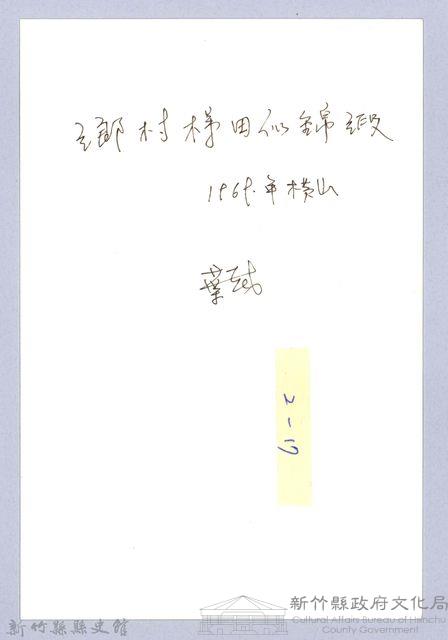 鄉村梯田似錦緞
1969.年橫山
葉裁
2-19
新竹縣政府文化局
Cultural Affairs Bureau of Hsinchu
County Government
新竹縣縣史館